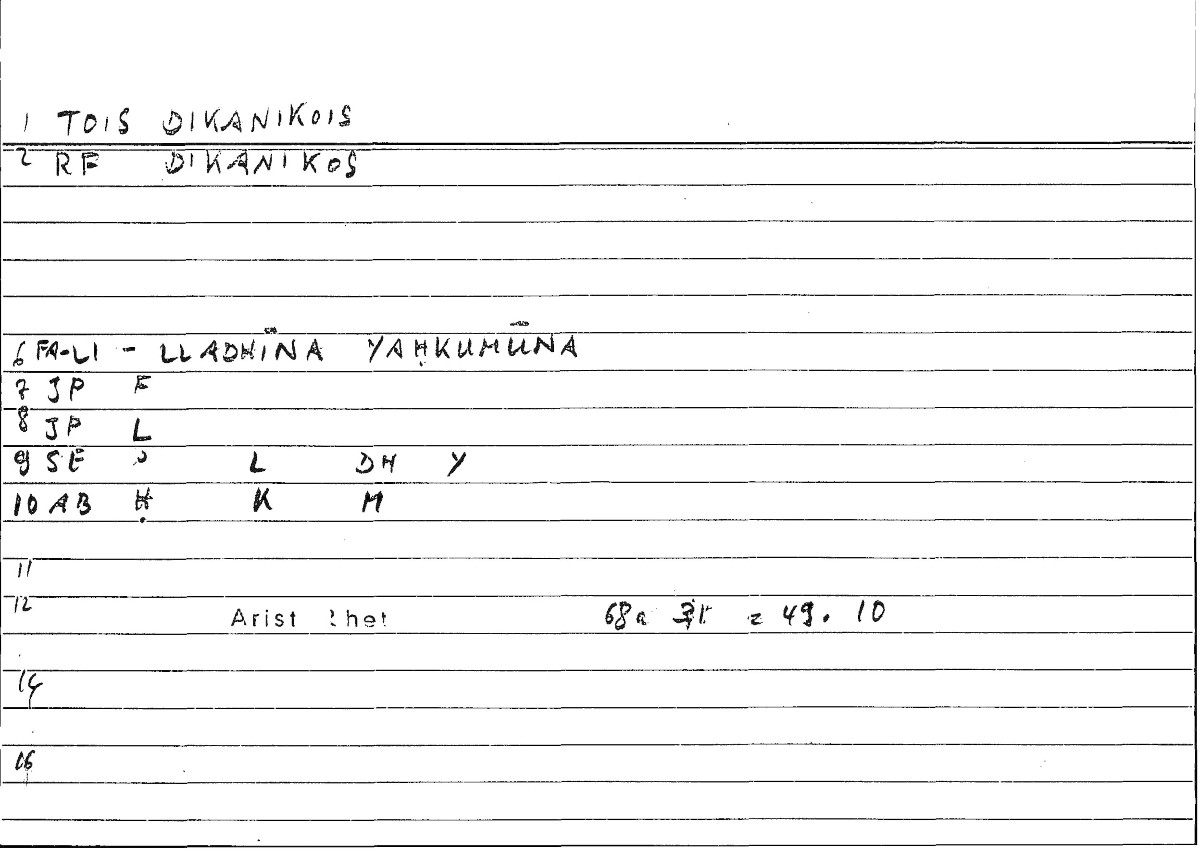 1 TOIS DIKANIKOIS
2 RF DIKANIKOS
6 FA-LI - LLADHĪNA YAḤKUMŪNA
7 JP F
8 JP L
9 SE L DH Y
10 AB Ḥ K M
11
12 Arist Rhet 68a = 49. 10
14
16